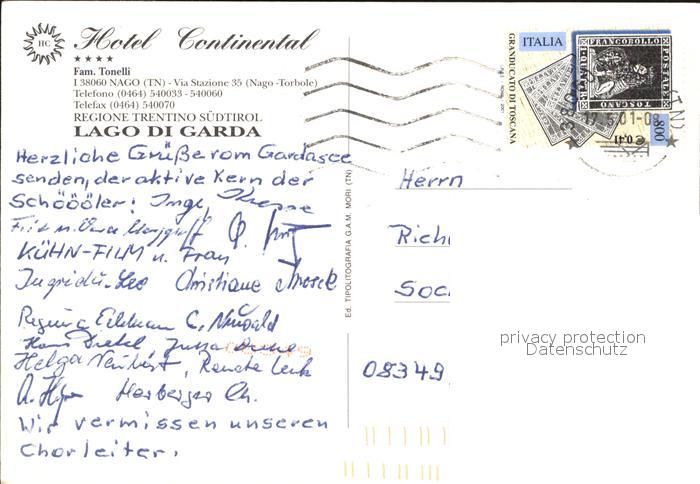 HC
Hotel Continental
★ ★ ★ ★
Fam. Tonelli
I 38060 NAGO (TN) - Via Stazione 35 (Nago -Torbole)
Telefono (0464) 540033 - 540060
Telefax (0464) 540070
REGIONE TRENTINO SÜDTIROL
LAGO DI GARDA
Herzliche Grüße vom Gardasee
senden, der aktive Kern der
Schöööler! Inge
KÜHN-FILM u. Frau
Ingrid u. Leo Christiane
Regina C.
Hans
Helga Renate
Herberger Ch.
Wir vermissen unseren
Chorleiter.
Ed. TIPOLITOGRAFIA G.A.M. MORI (TN)
ITALIA
GRANDUCATO DI TOSCANA
FRANCOBOLLO
POSTALE
TOSCANO
800
€ 0,41
(TN)
Herrn
Rich
Soc
08349
privacy protection
Datenschutz